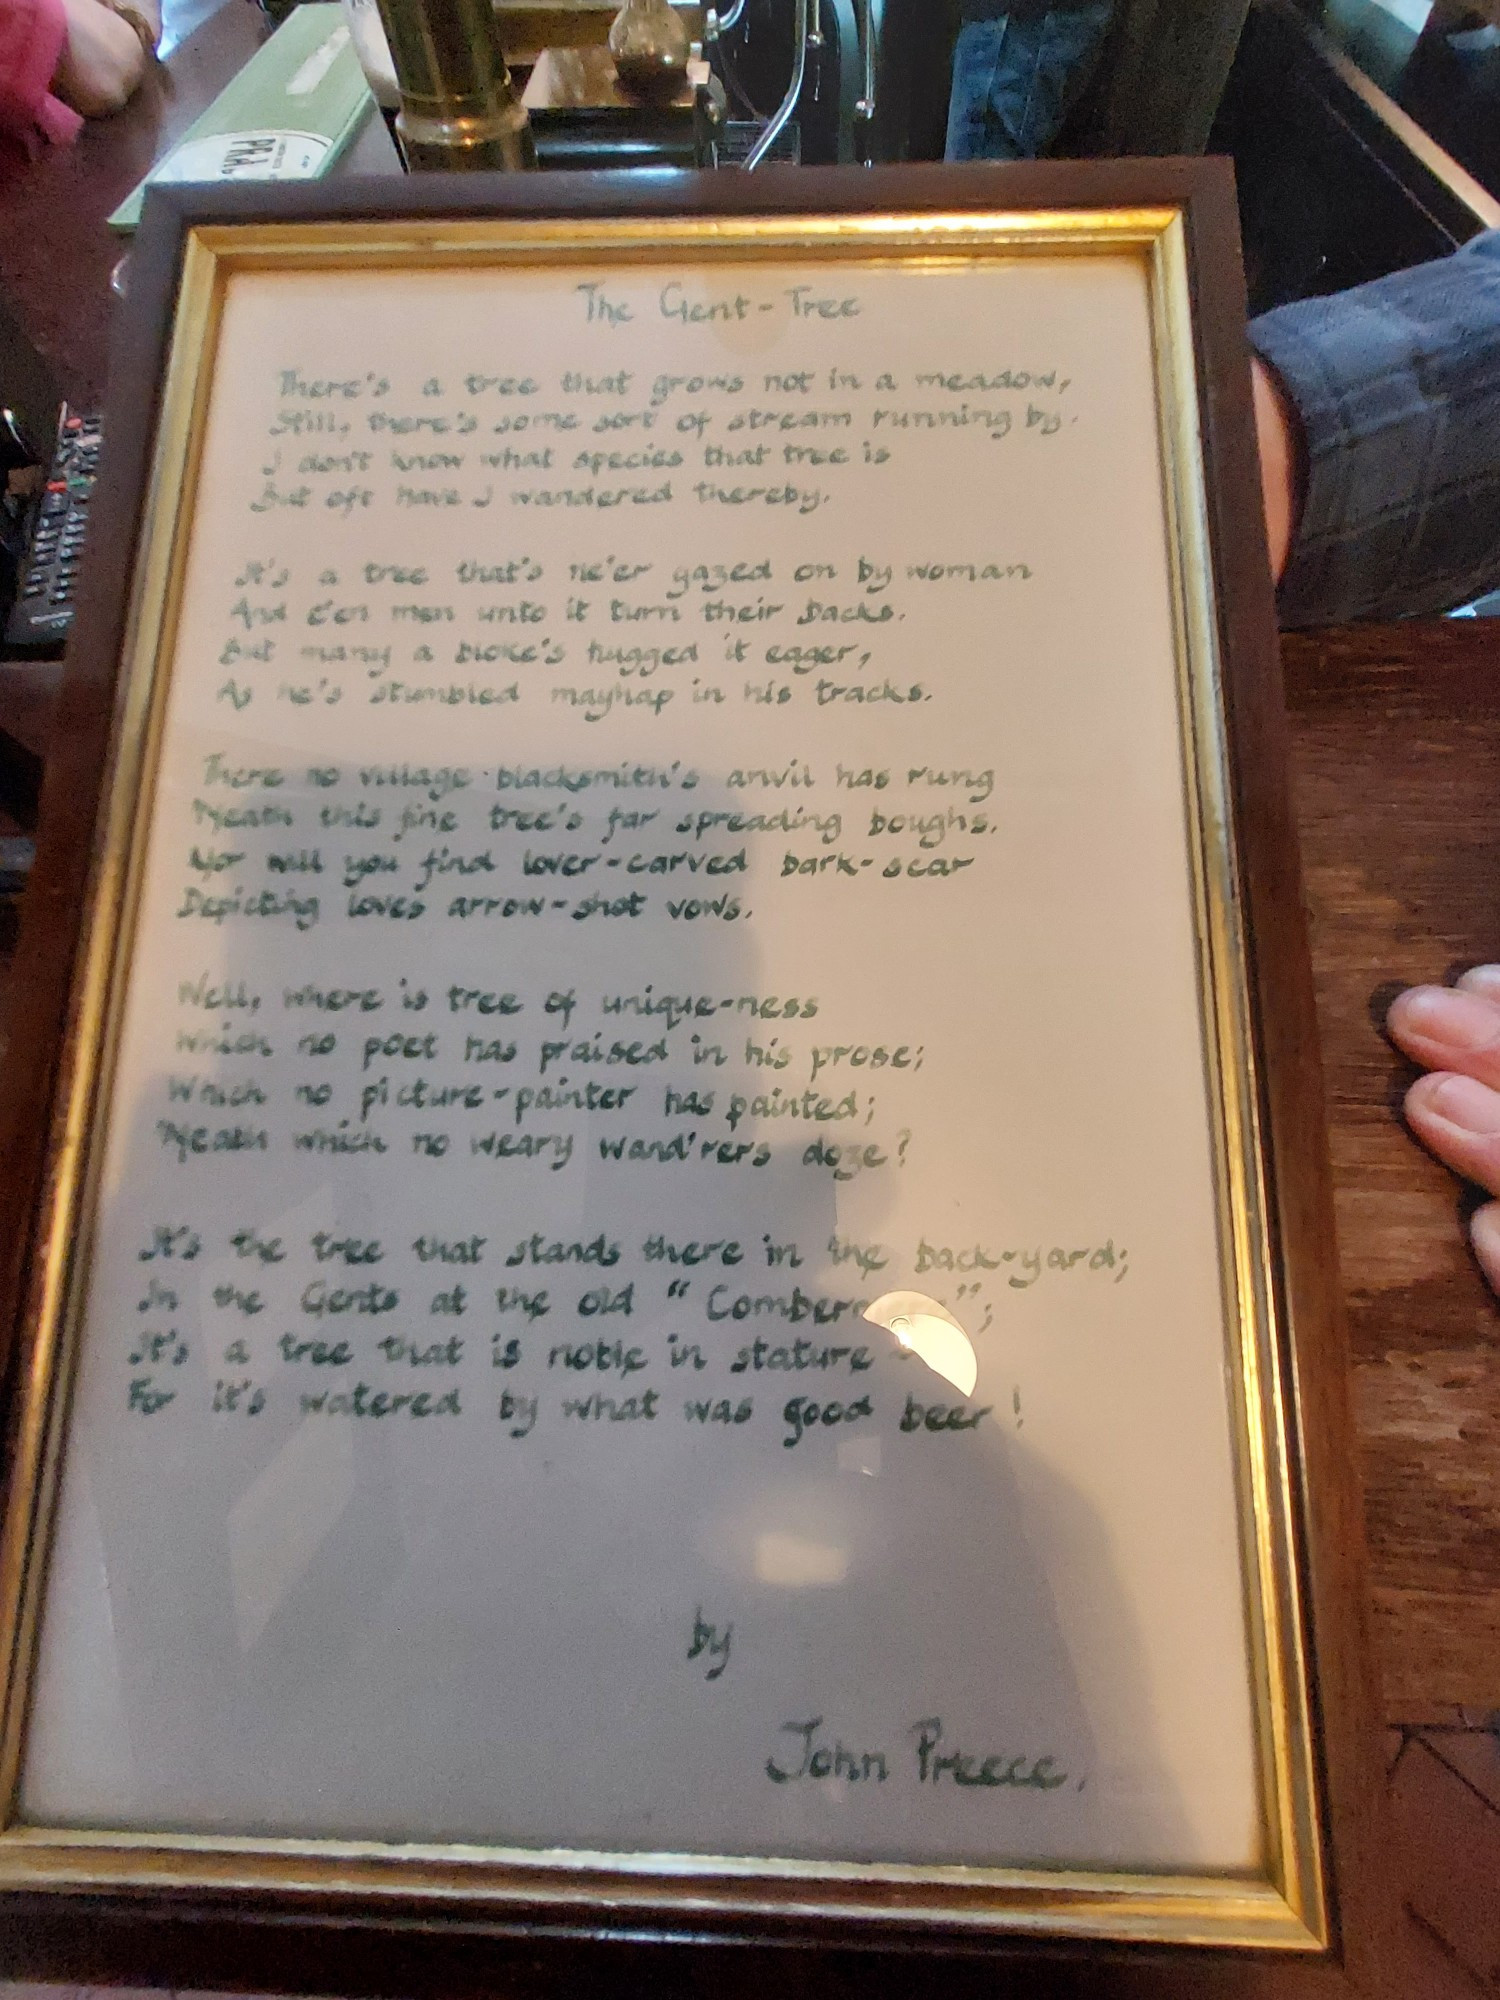 The Gent-Tree
There's a tree that grows not in a meadow,
Still, there's some sort of stream running by.
I don't know what species that tree is
But oft have I wandered thereby.
It's a tree that's ne'er gazed on by woman
And e'en men unto it turn their backs.
But many a bloke's hugged it eager,
As he's stumbled mayhap in his tracks.
There no village blacksmith's anvil has rung
'Neath this fine tree's far spreading boughs.
Nor will you find lover-carved bark-scar
Depicting loves arrow-shot vows.
Well, where is tree of unique-ness
Which no poet has praised in his prose;
Which no picture-painter has painted;
'Neath which no weary wand'rers doze?
It's the tree that stands there in the back-yard;
In the Gents at the old " ";
It's a tree that is noble in stature -
For it's watered by what was good beer!
by
John Preece.